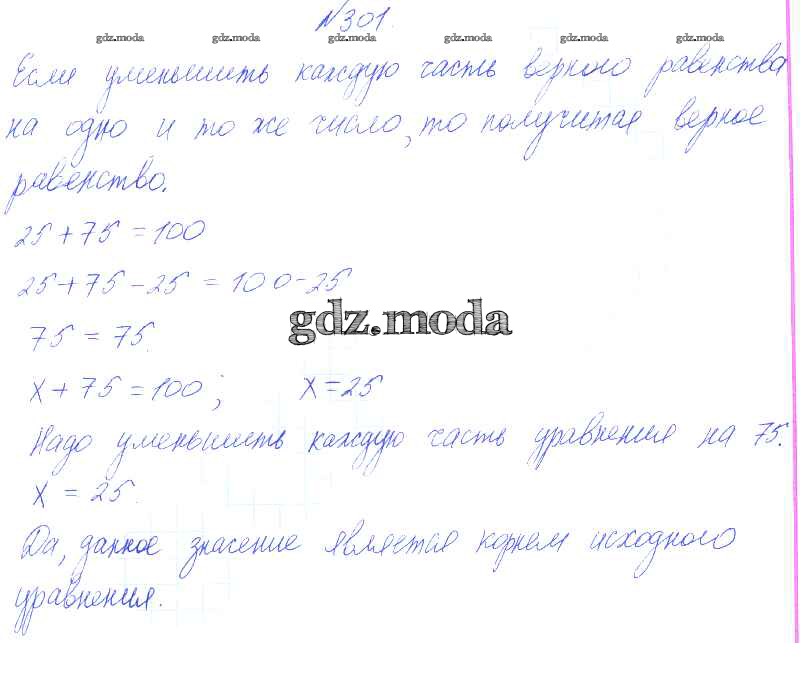 №301.
gdz.moda gdz.moda gdz.moda gdz.moda gdz.moda gdz.moda
Если уменьшить каждую часть верного равенства
на одно и то же число, то получится верное
равенство.
25 + 75 = 100
25 + 75 - 25 = 100 - 25
gdz.moda
75 = 75.
x + 75 = 100; x = 25
Надо уменьшить каждую часть уравнения на 75.
x = 25.
Да, данное значение является корнем исходного
уравнения.